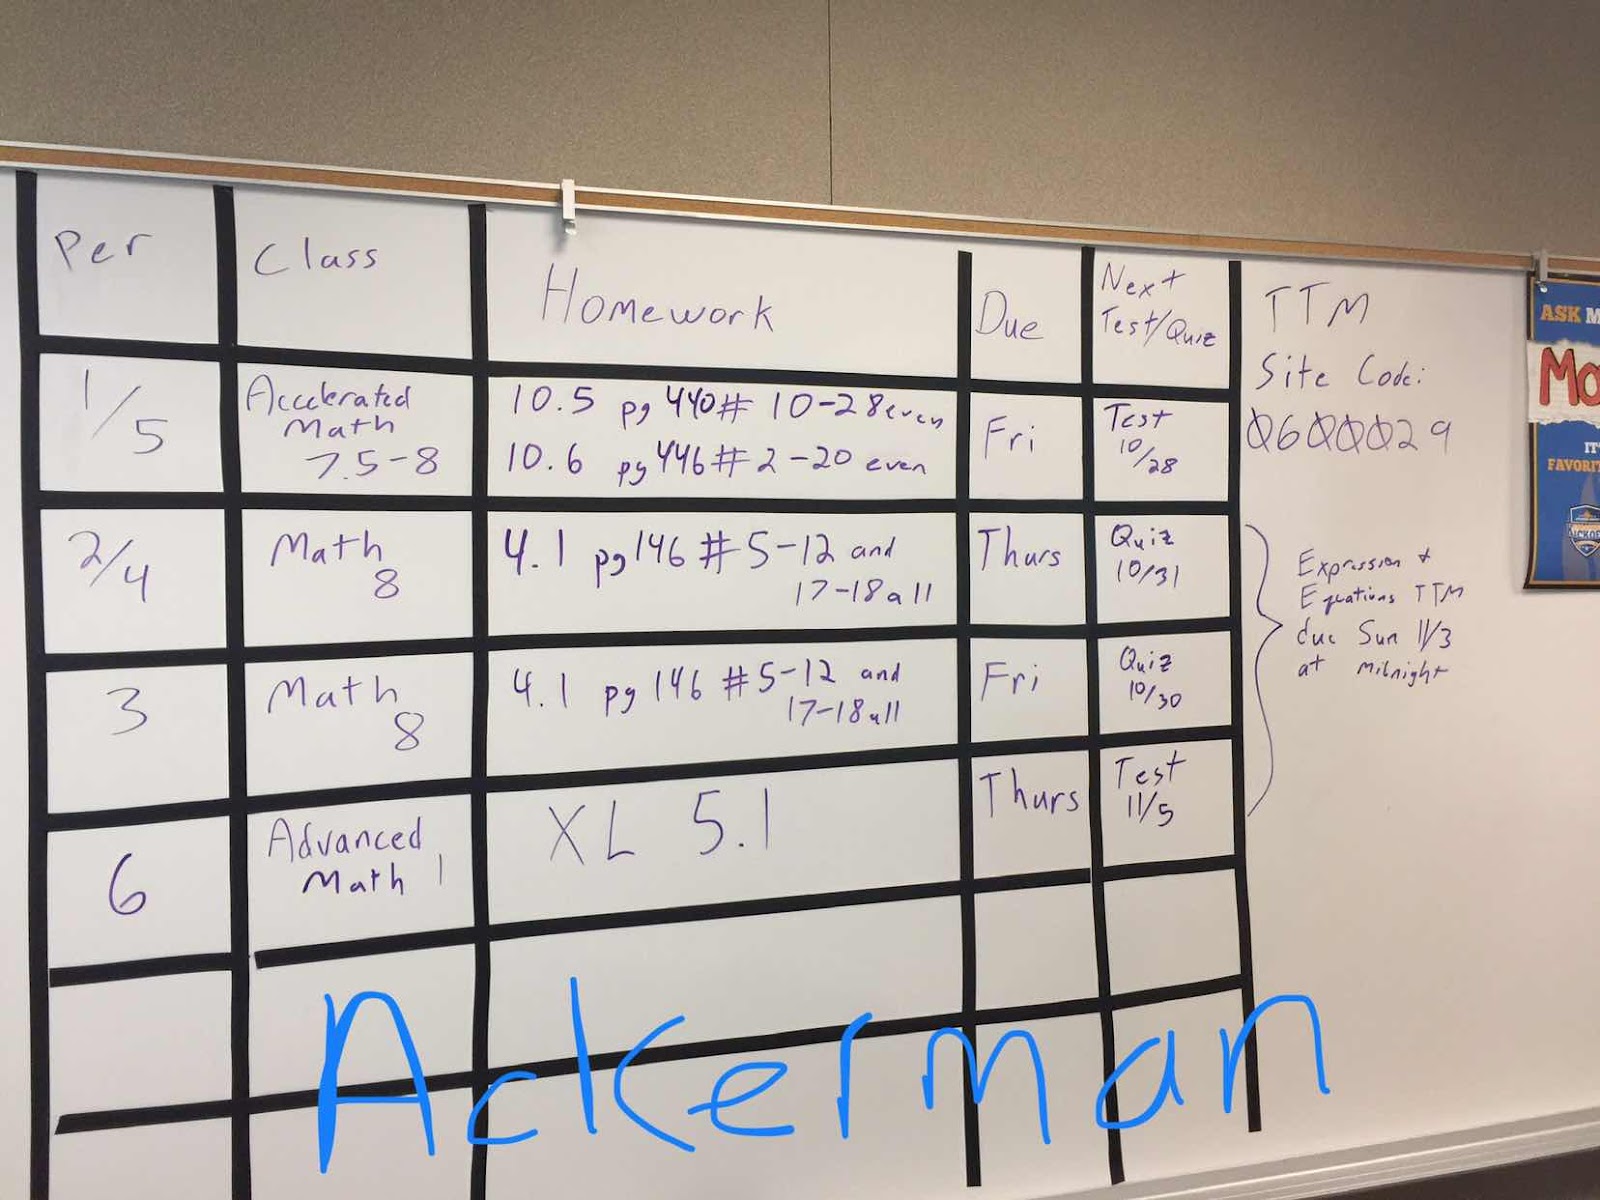 Per Class Homework Due Next Test/Quiz
1/5 Accelerated Math 7.5-8 10.5 pg 440# 10-28 even Fri Test 10/28
10.6 pg 446# 2-20 even
2/4 Math 8 4.1 pg 146 # 5-12 and 17-18 all Thurs Quiz 10/31
3 Math 8 4.1 pg 146 # 5-12 and 17-18 all Fri Quiz 10/30
6 Advanced Math 1 XL 5.1 Thurs Test 11/5
TTM
Site Code:
0600029
Expression +
Equations TTM
due Sun 11/3
at midnight
Ackerman
ASK
IT'S
FAVORIT